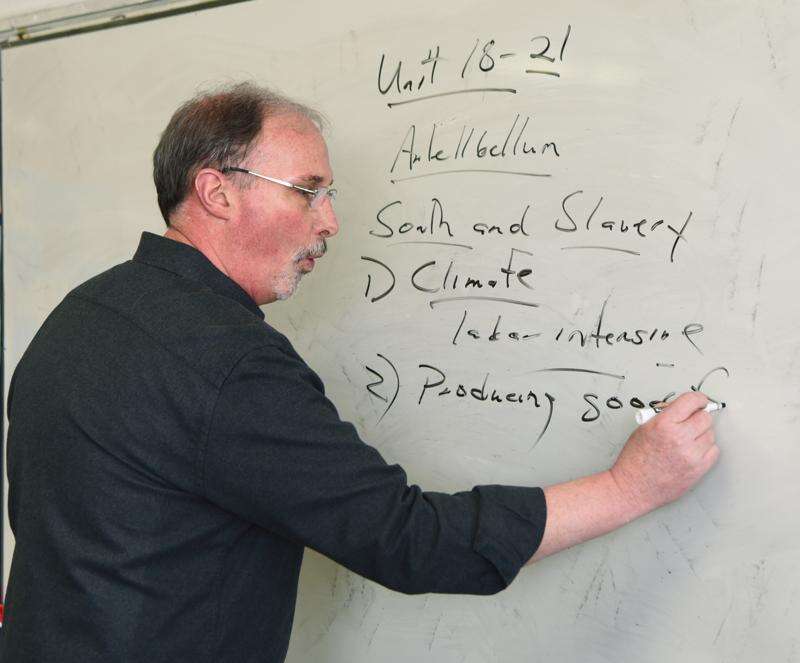 Unit 18-21
Antellbellum
South and Slavery
1) Climate
labor-intensive
2) Producing goods